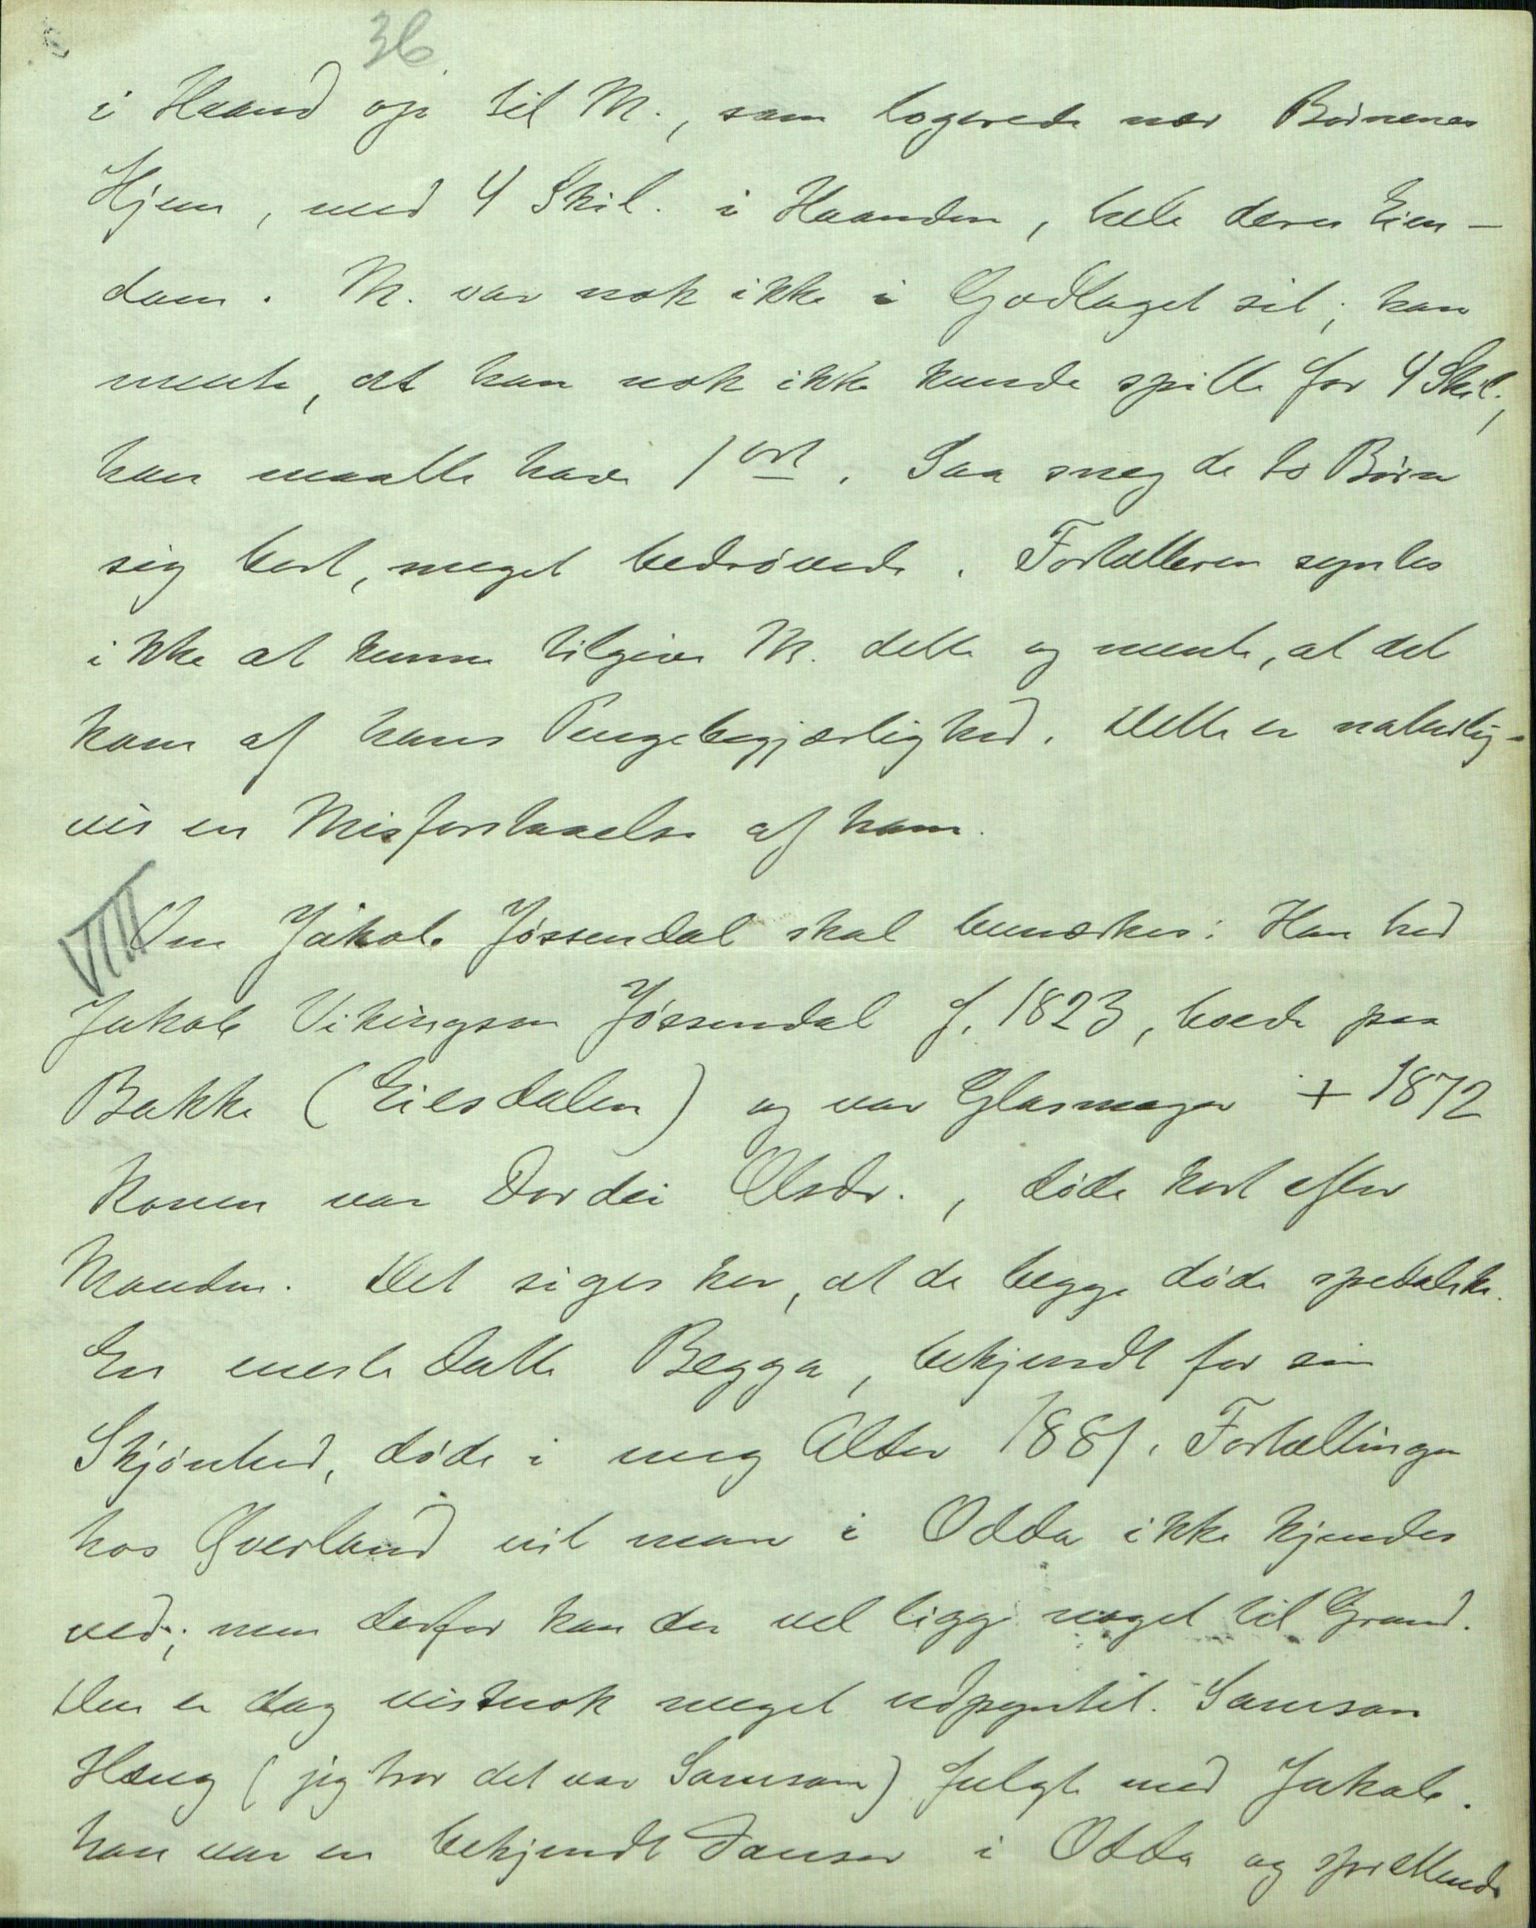 36
i Haand op til M., som logerede nær Børnenes
Hjem, med 4 Skil. i Haanden, hele deres Eien-
dom. M. var nok ikke i Godlaget sit; han
mente, at han nok ikke kunde spille for 4 Skil.,
han maatte have 1 ort. Saa sneg de to Børn
sig bort, meget bedrøvede. Fortælleren syntes
ikke at kunne tilgive M. dette og mente, at det
kom af hans Pengebegjærlighed. Dette er naturlig-
vis en Misforstaaelse af ham.
VIII Om Jakob Jøssendal skal bemærkes: Han hed
Jakob Vikingson Jøssendal f. 1823, boede paa
Bakke (Eilsdalen) og var Glasmager + 1872
Konen var Dordei Olsdr., døde kort efter
Manden. Det siges her, at de begge døde spedalske.
En eneste Datte Begga, bekjendt for sin
Skjønhed, døde i ung Alder 1881. Fortællingen
hos Øverland vil man i Odda ikke kjendes
ved; men derfor kan der vel ligge noget til Grund.
Den er dog vistnok meget udpyntet. Samson
Haug (jeg tror det var Samson) fulgte med Jakob.
han var en bekjendt Danser i Odda og sprættende